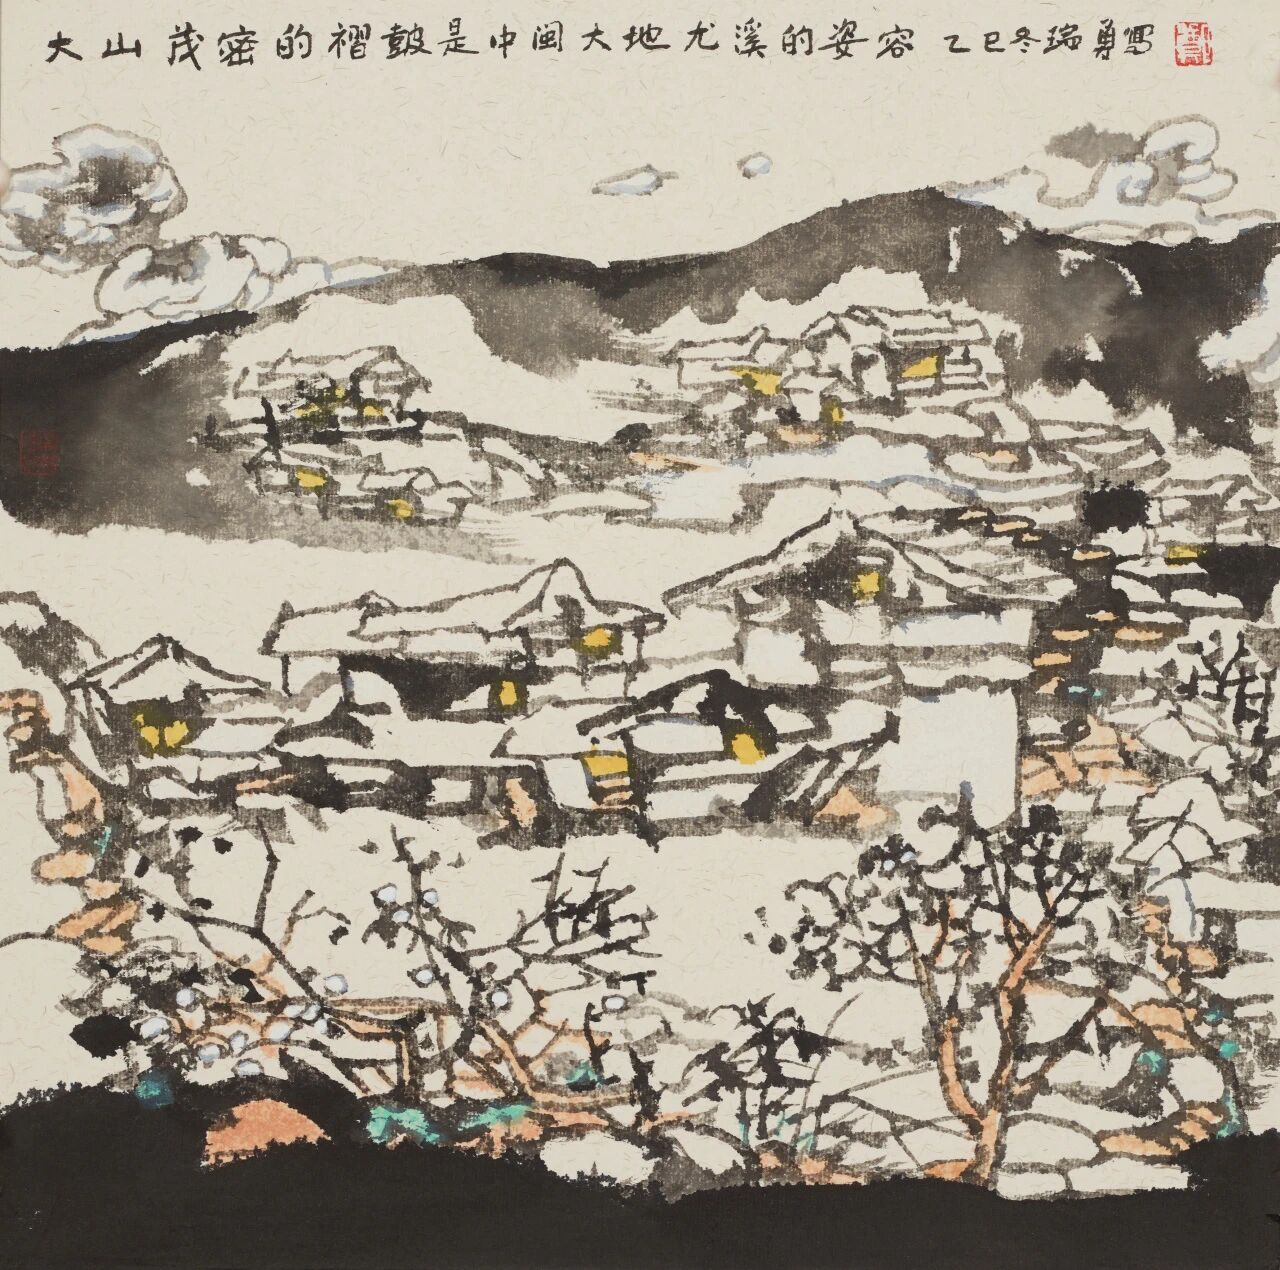 大山茂密的褶皱是中闽大地尤溪的姿容 乙巳冬瑞勇写